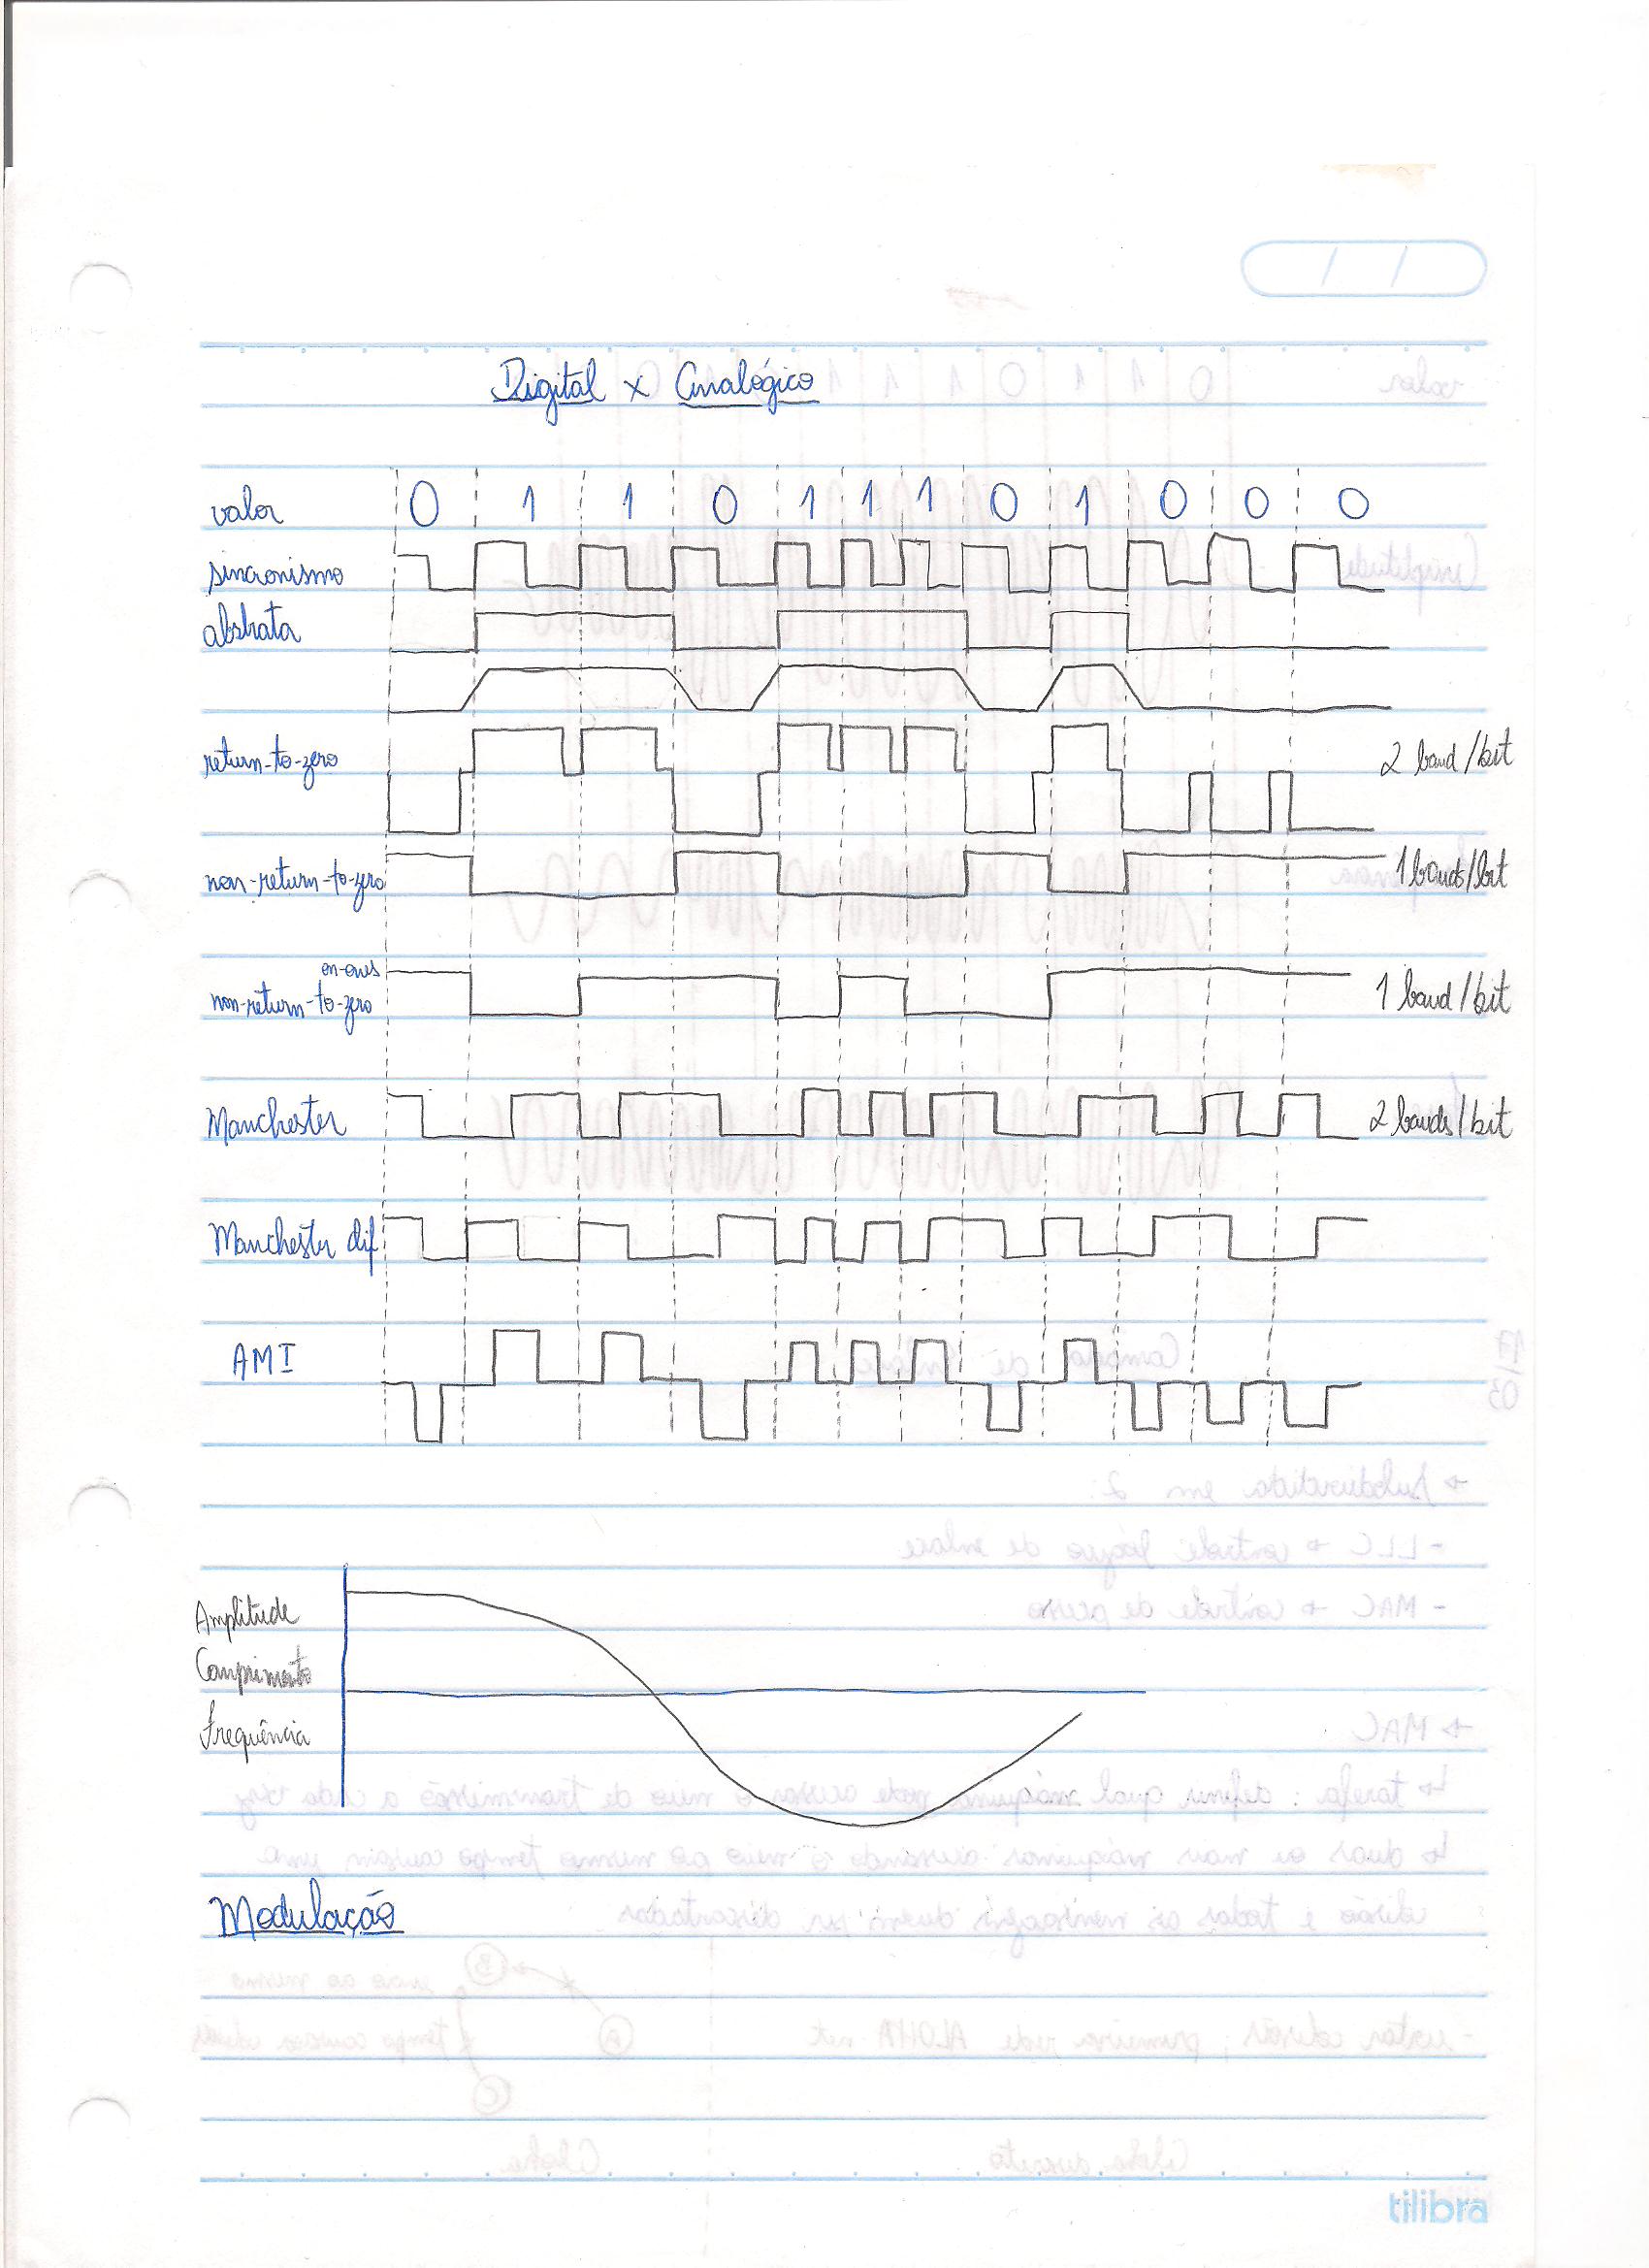 Digital x Analógico
valor 0 1 1 0 1 1 1 0 1 0 0 0
sincronismo
abstrata
return-to-zero 2 baud/bit
non-return-to-zero 1 bauds/bit
on-ones
non-return-to-zero 1 baud/bit
Manchester 2 bauds/bit
Manchester dif
AMI
Amplitude
Comprimento
Frequência
Modulação
tilibra